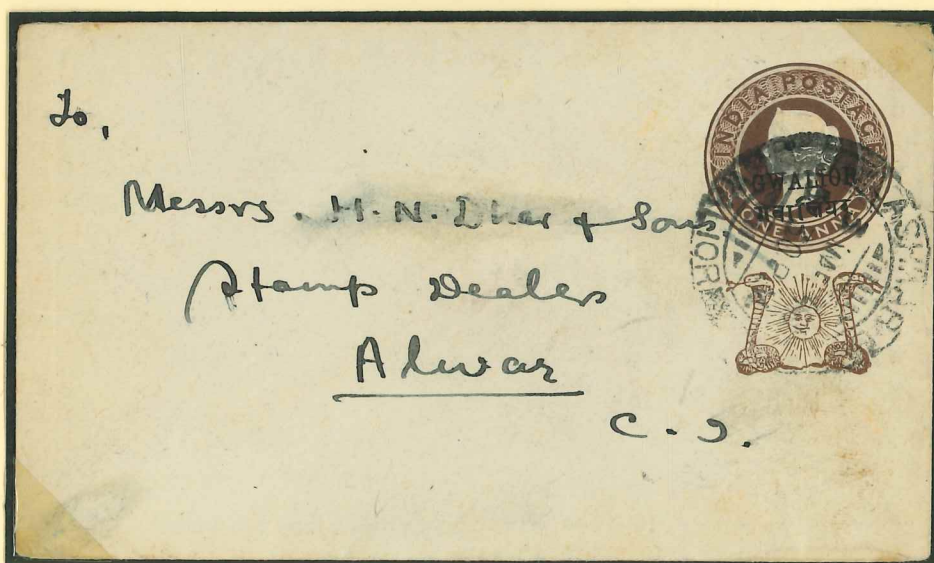 To,
Messrs. H. N. Dhar & Sons,
Stamp Dealers
Alwar
C. I.
INDIA POSTAGE
GWALIOR
गवालियर
ONE ANNA